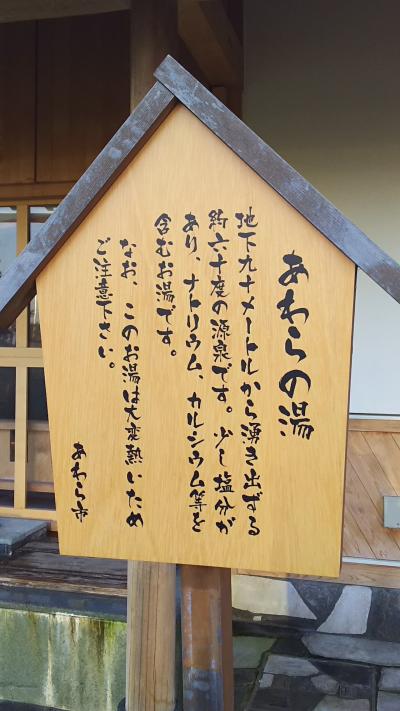 あわらの湯
地下九十メートルから湧き出ずる
約六十度の源泉です。少し塩分が
あり、ナトリウム、カルシウム等を
含むお湯です。
なお、このお湯は大変熱いため
ご注意下さい。
あわら市